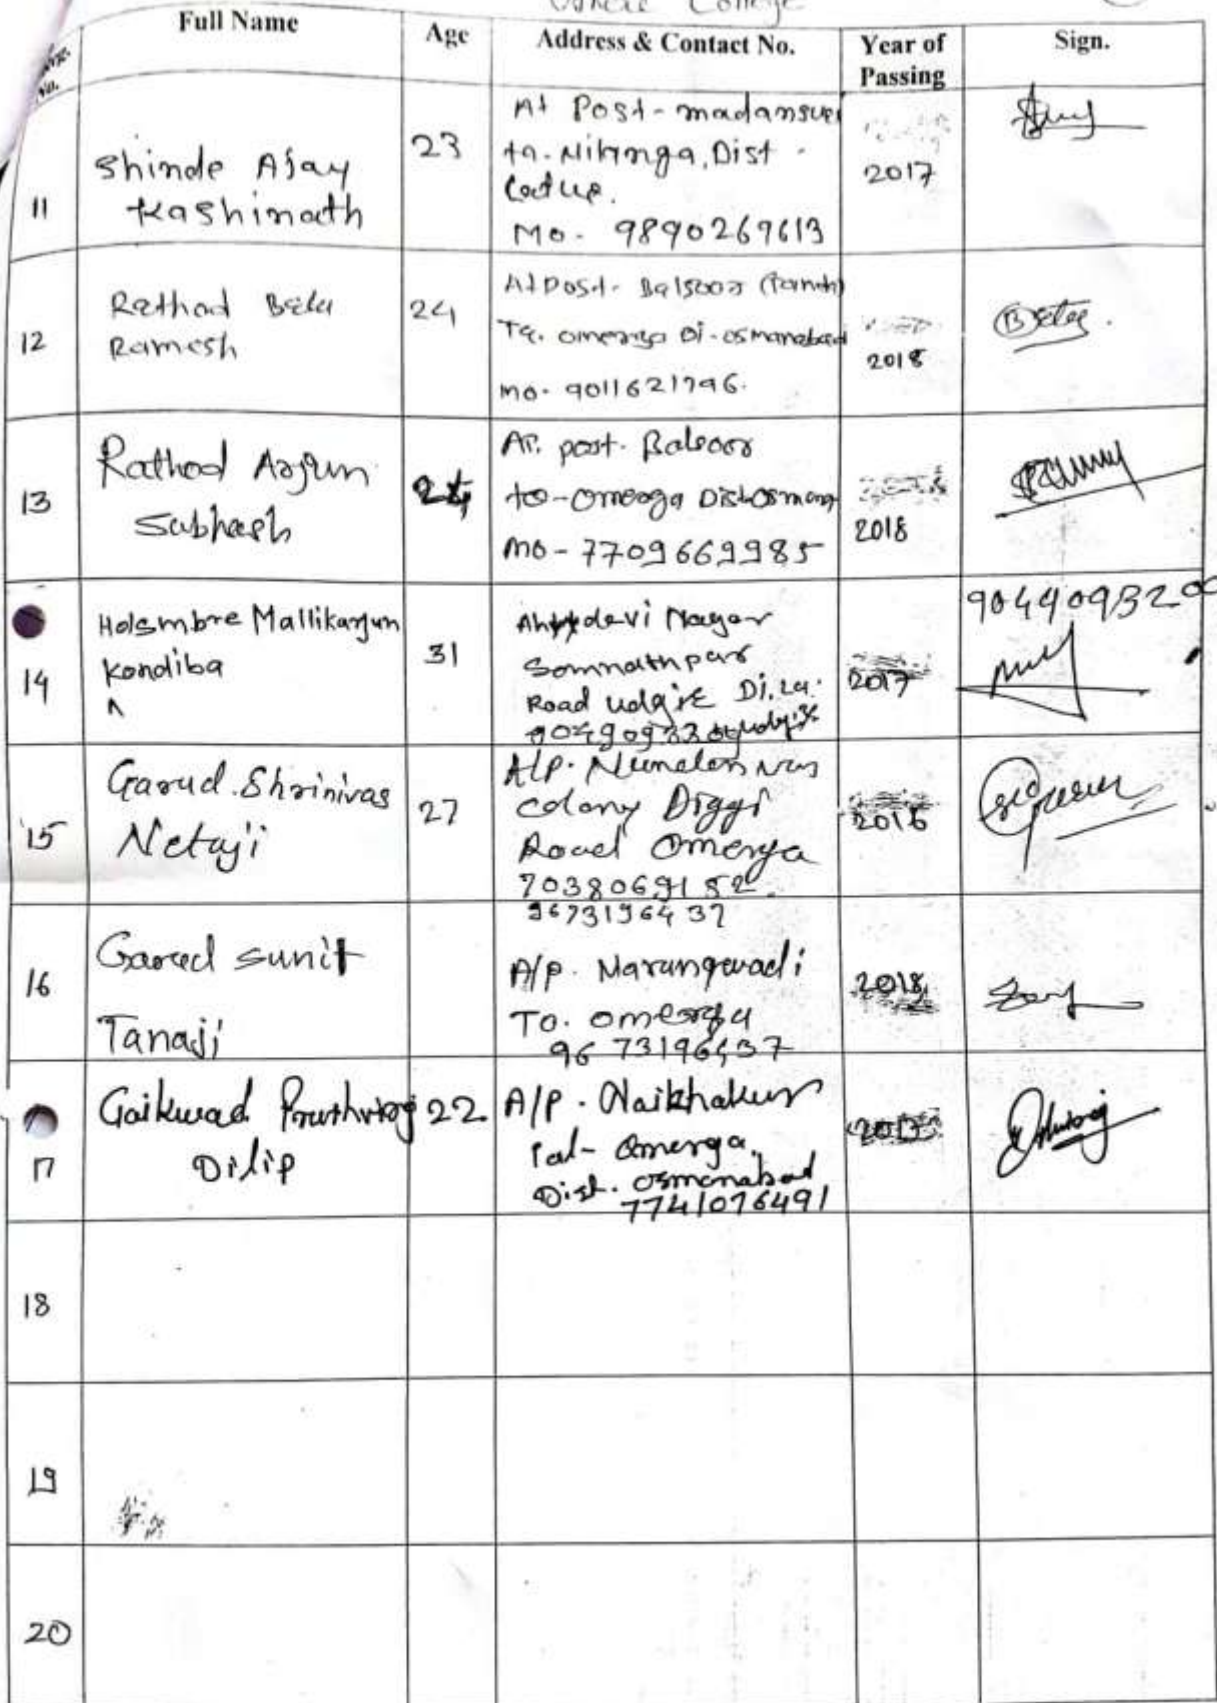 College
Full Name Age Address & Contact No. Year of Passing Sign.
No.
11 Shinde Ajay Kashinath 23
At Post - madansuri
ta. Nilanga, Dist -
Latur.
Mo. 9890269613
2017
12 Rathod Balu Ramesh 24
At Post - Balsoor
Ta. omerga Di-osmanabad
mo. 9011621796.
2018
13 Rathod Arjun Subhash 24
At. post. Balsoor
ta-omerga Dist osman
mo - 7709669985
2018
9044093200
14 Holsmbre Mallikarjun Kondiba 31
devi Nagar
Somnathpur
Road udgir Di. La.
2017
15 Garud. Shrinivas Netaji 27
A/p.
colony Diggi
Road Omerga
7038069152
2016
16 Garud sunit Tanaji
9673196437
A/p. Narangwadi
To. omerga
9673196437
2018
17 Gaikwad Pruthviraj Dilip 22
A/P. Naikhakur
Tal- Omerga,
Dist. osmanabad
7741076491
18
19
20